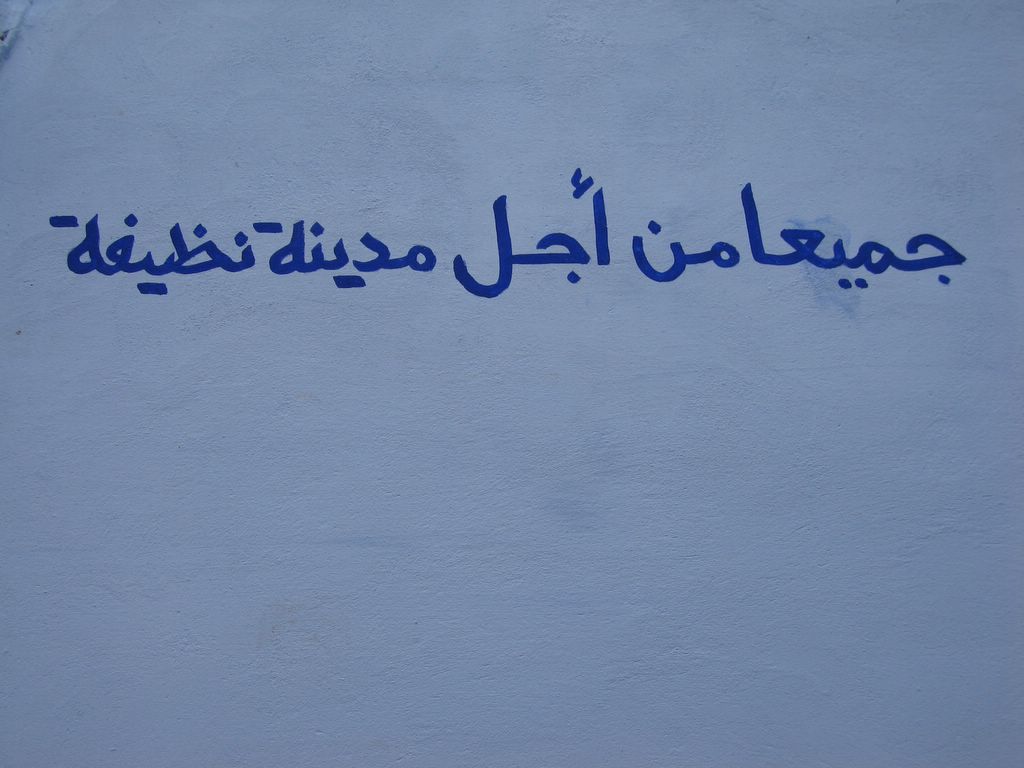 جميعا من أجل مدينة نظيفة